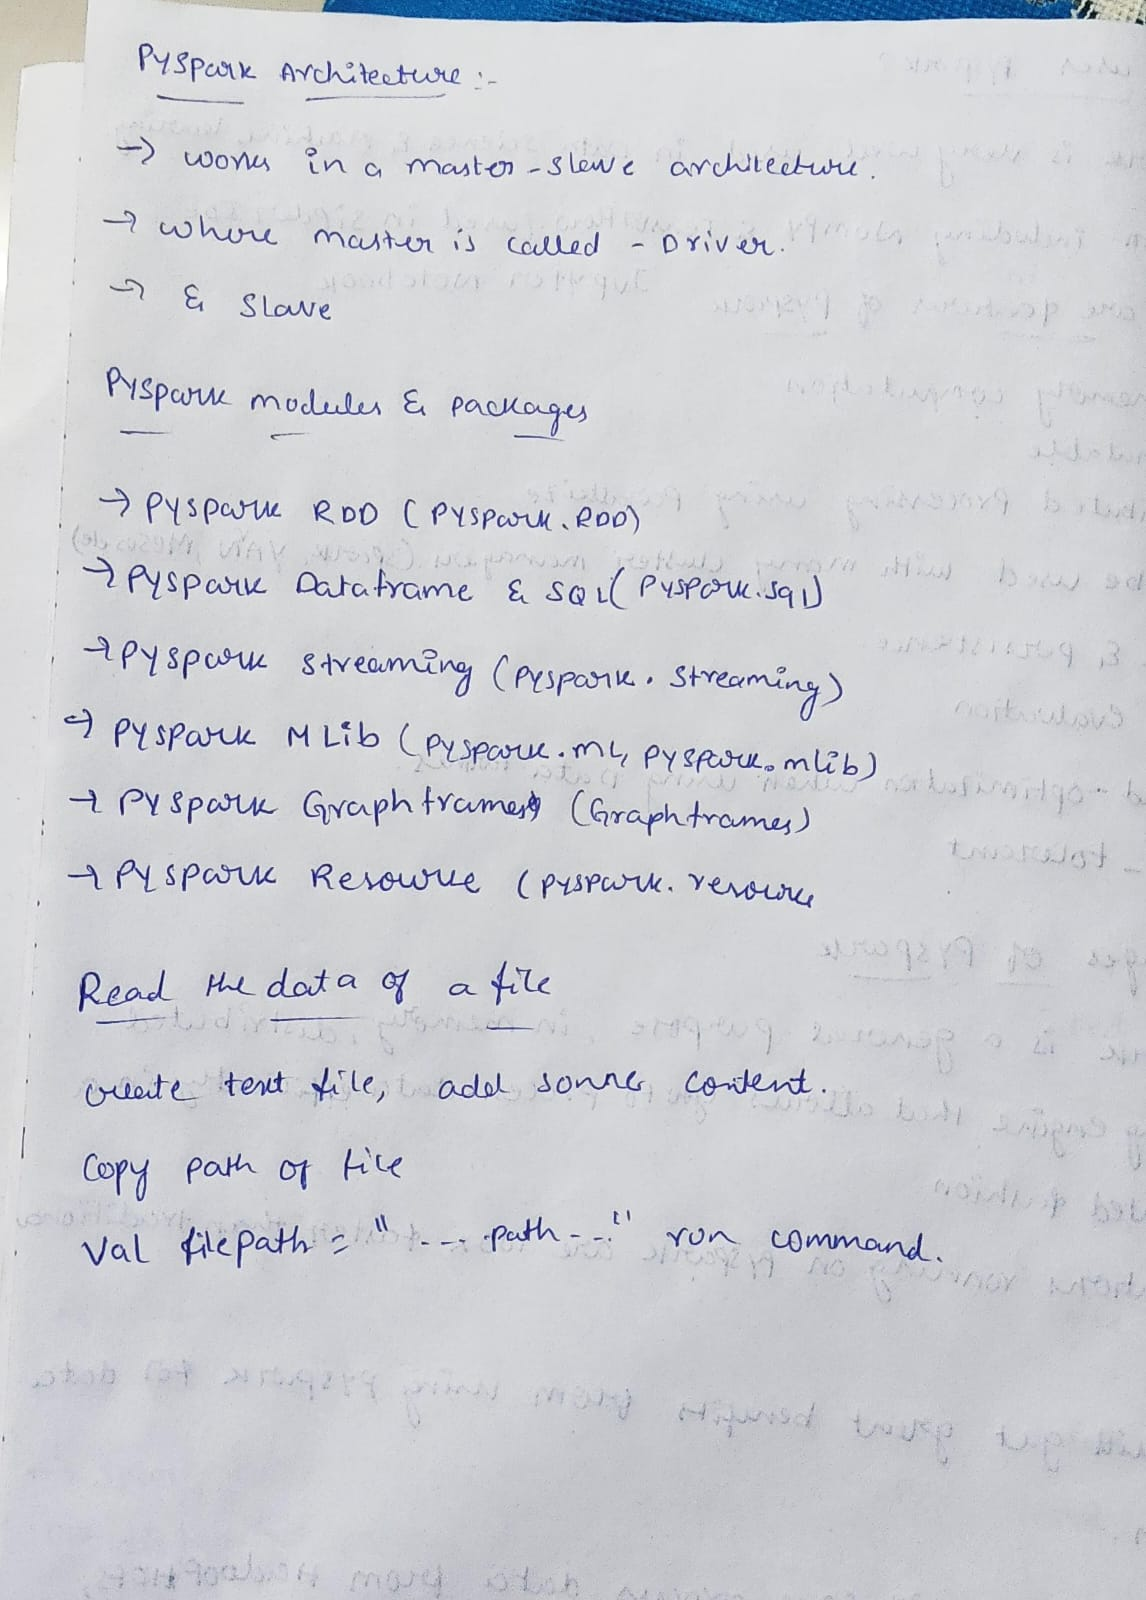 PYSpark Architecture :-
→ works in a master-slave architecture.
→ where master is called - Driver.
→ & Slave
PYSpark modules & packages
→ PYSpark RDD (PYSpark.RDD)
→ PYSpark Dataframe & SQL (PYSpark.sql)
→ PYSpark streaming (PYSpark.streaming)
→ PYSpark MLib (PYSpark.ML, PYSpark.mlib)
→ PYSpark Graphframes (Graphframes)
→ PYSpark Resource (PYSpark.resource
Read the data of a file
create text file, add some content.
Copy path of file
Val filepath = "--- path --." run command.